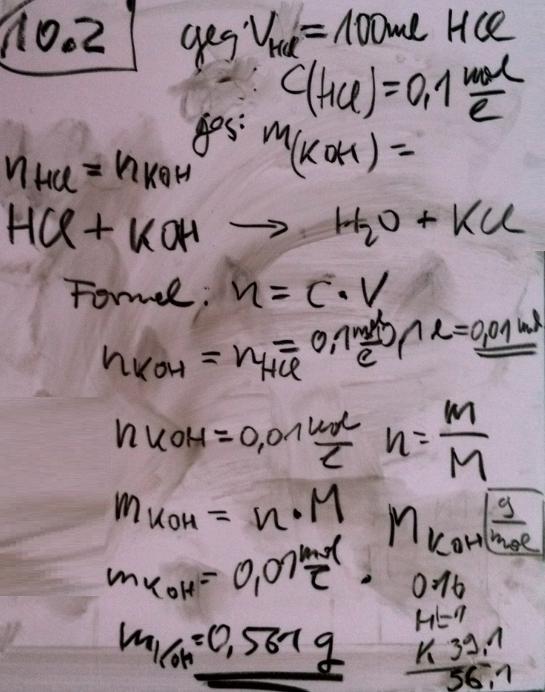 10.2
geg: V HCl = 100 ml HCl
: C(HCl) = 0,1 mol/l
ges: m(KOH) =
n HCl = n KOH
HCl + KOH → H₂O + KCl
Formel: n = C · V
n KOH = n HCl = 0,1 mol/l · 0,1 l = 0,01 mol
n KOH = 0,01 mol/l n = m/M
m KOH = n · M M KOH [g/mol]
m KOH = 0,01 mol/l · O 16
H = 1
K 39,1
m KOH = 0,561 g 56,1